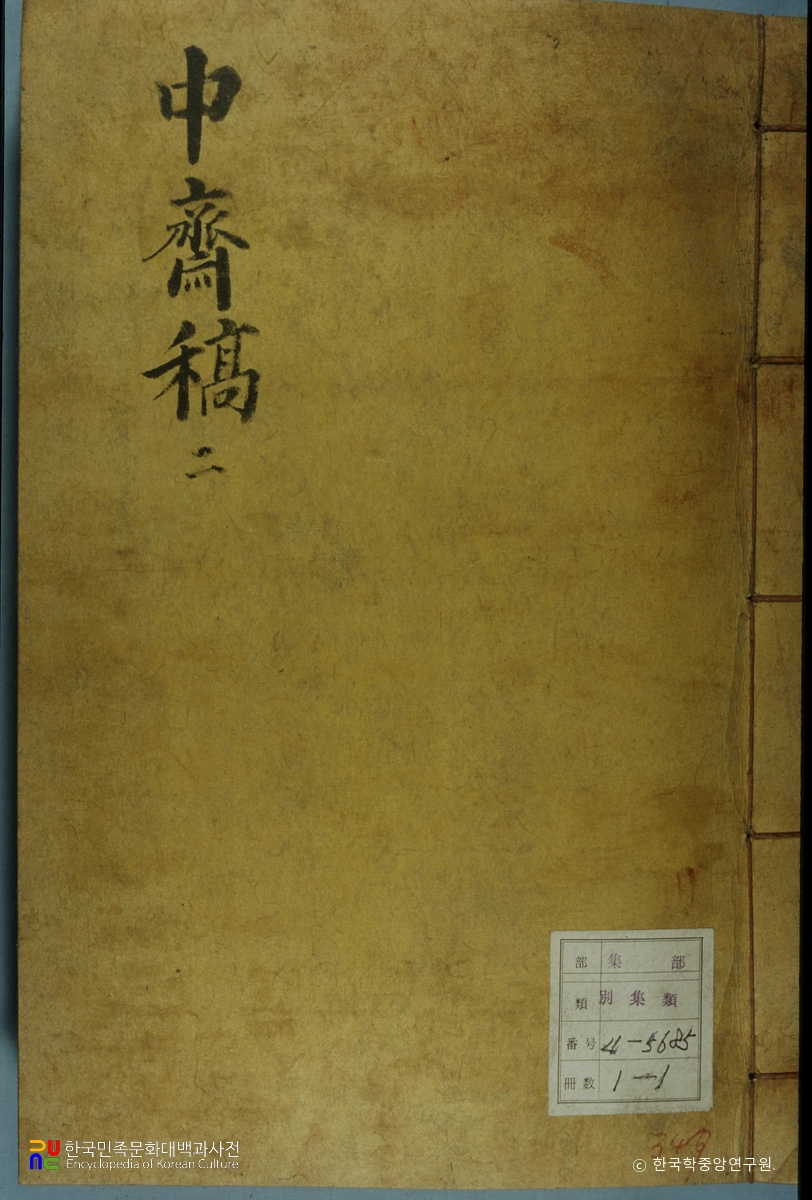 中齋稿 二
部 集 部
類 別集類
番号 4-5685
冊数 1-1
348
한국민족문화대백과사전
Encyclopedia of Korean Culture
© 한국학중앙연구원.